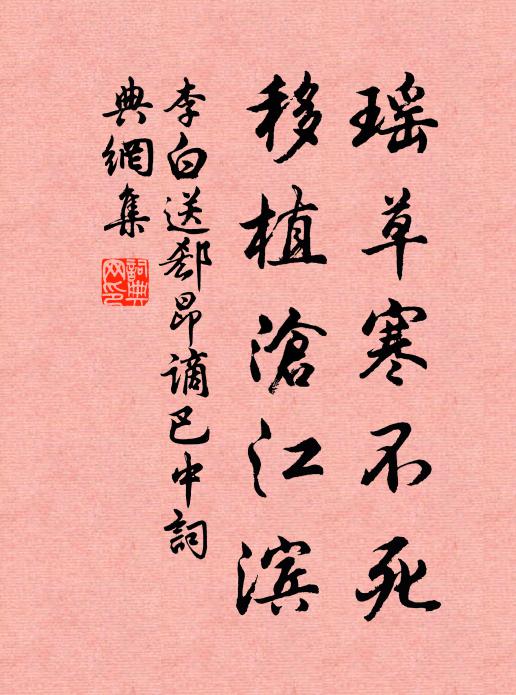 瑶草寒不死
移植滄江滨
李白送郄昂謫巴中詞
典網集
詞典网印